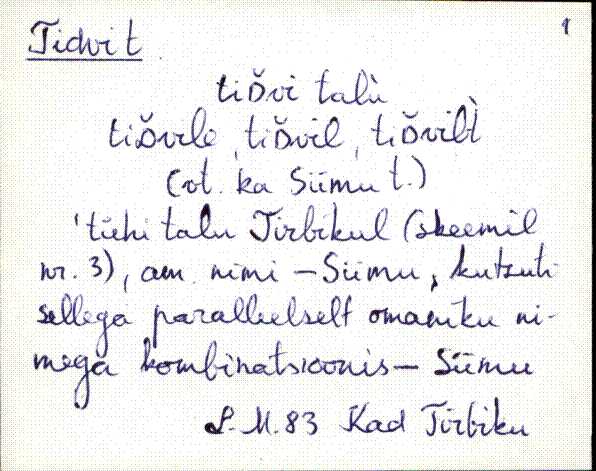 Tidvi t 1
tiD̆vi talù
tiD̆vile, tiD̆vil, tiD̆vilt̀
(vt. ka Siimu t.)
'tühi talu Tirbikul (skeemil
nr. 3), am. nimi – Siimu, kutsuti
sellega paralleelselt omaniku ni-
mega kombinatsioonis – Siimu
L.M. 83 Kad Tirbiku